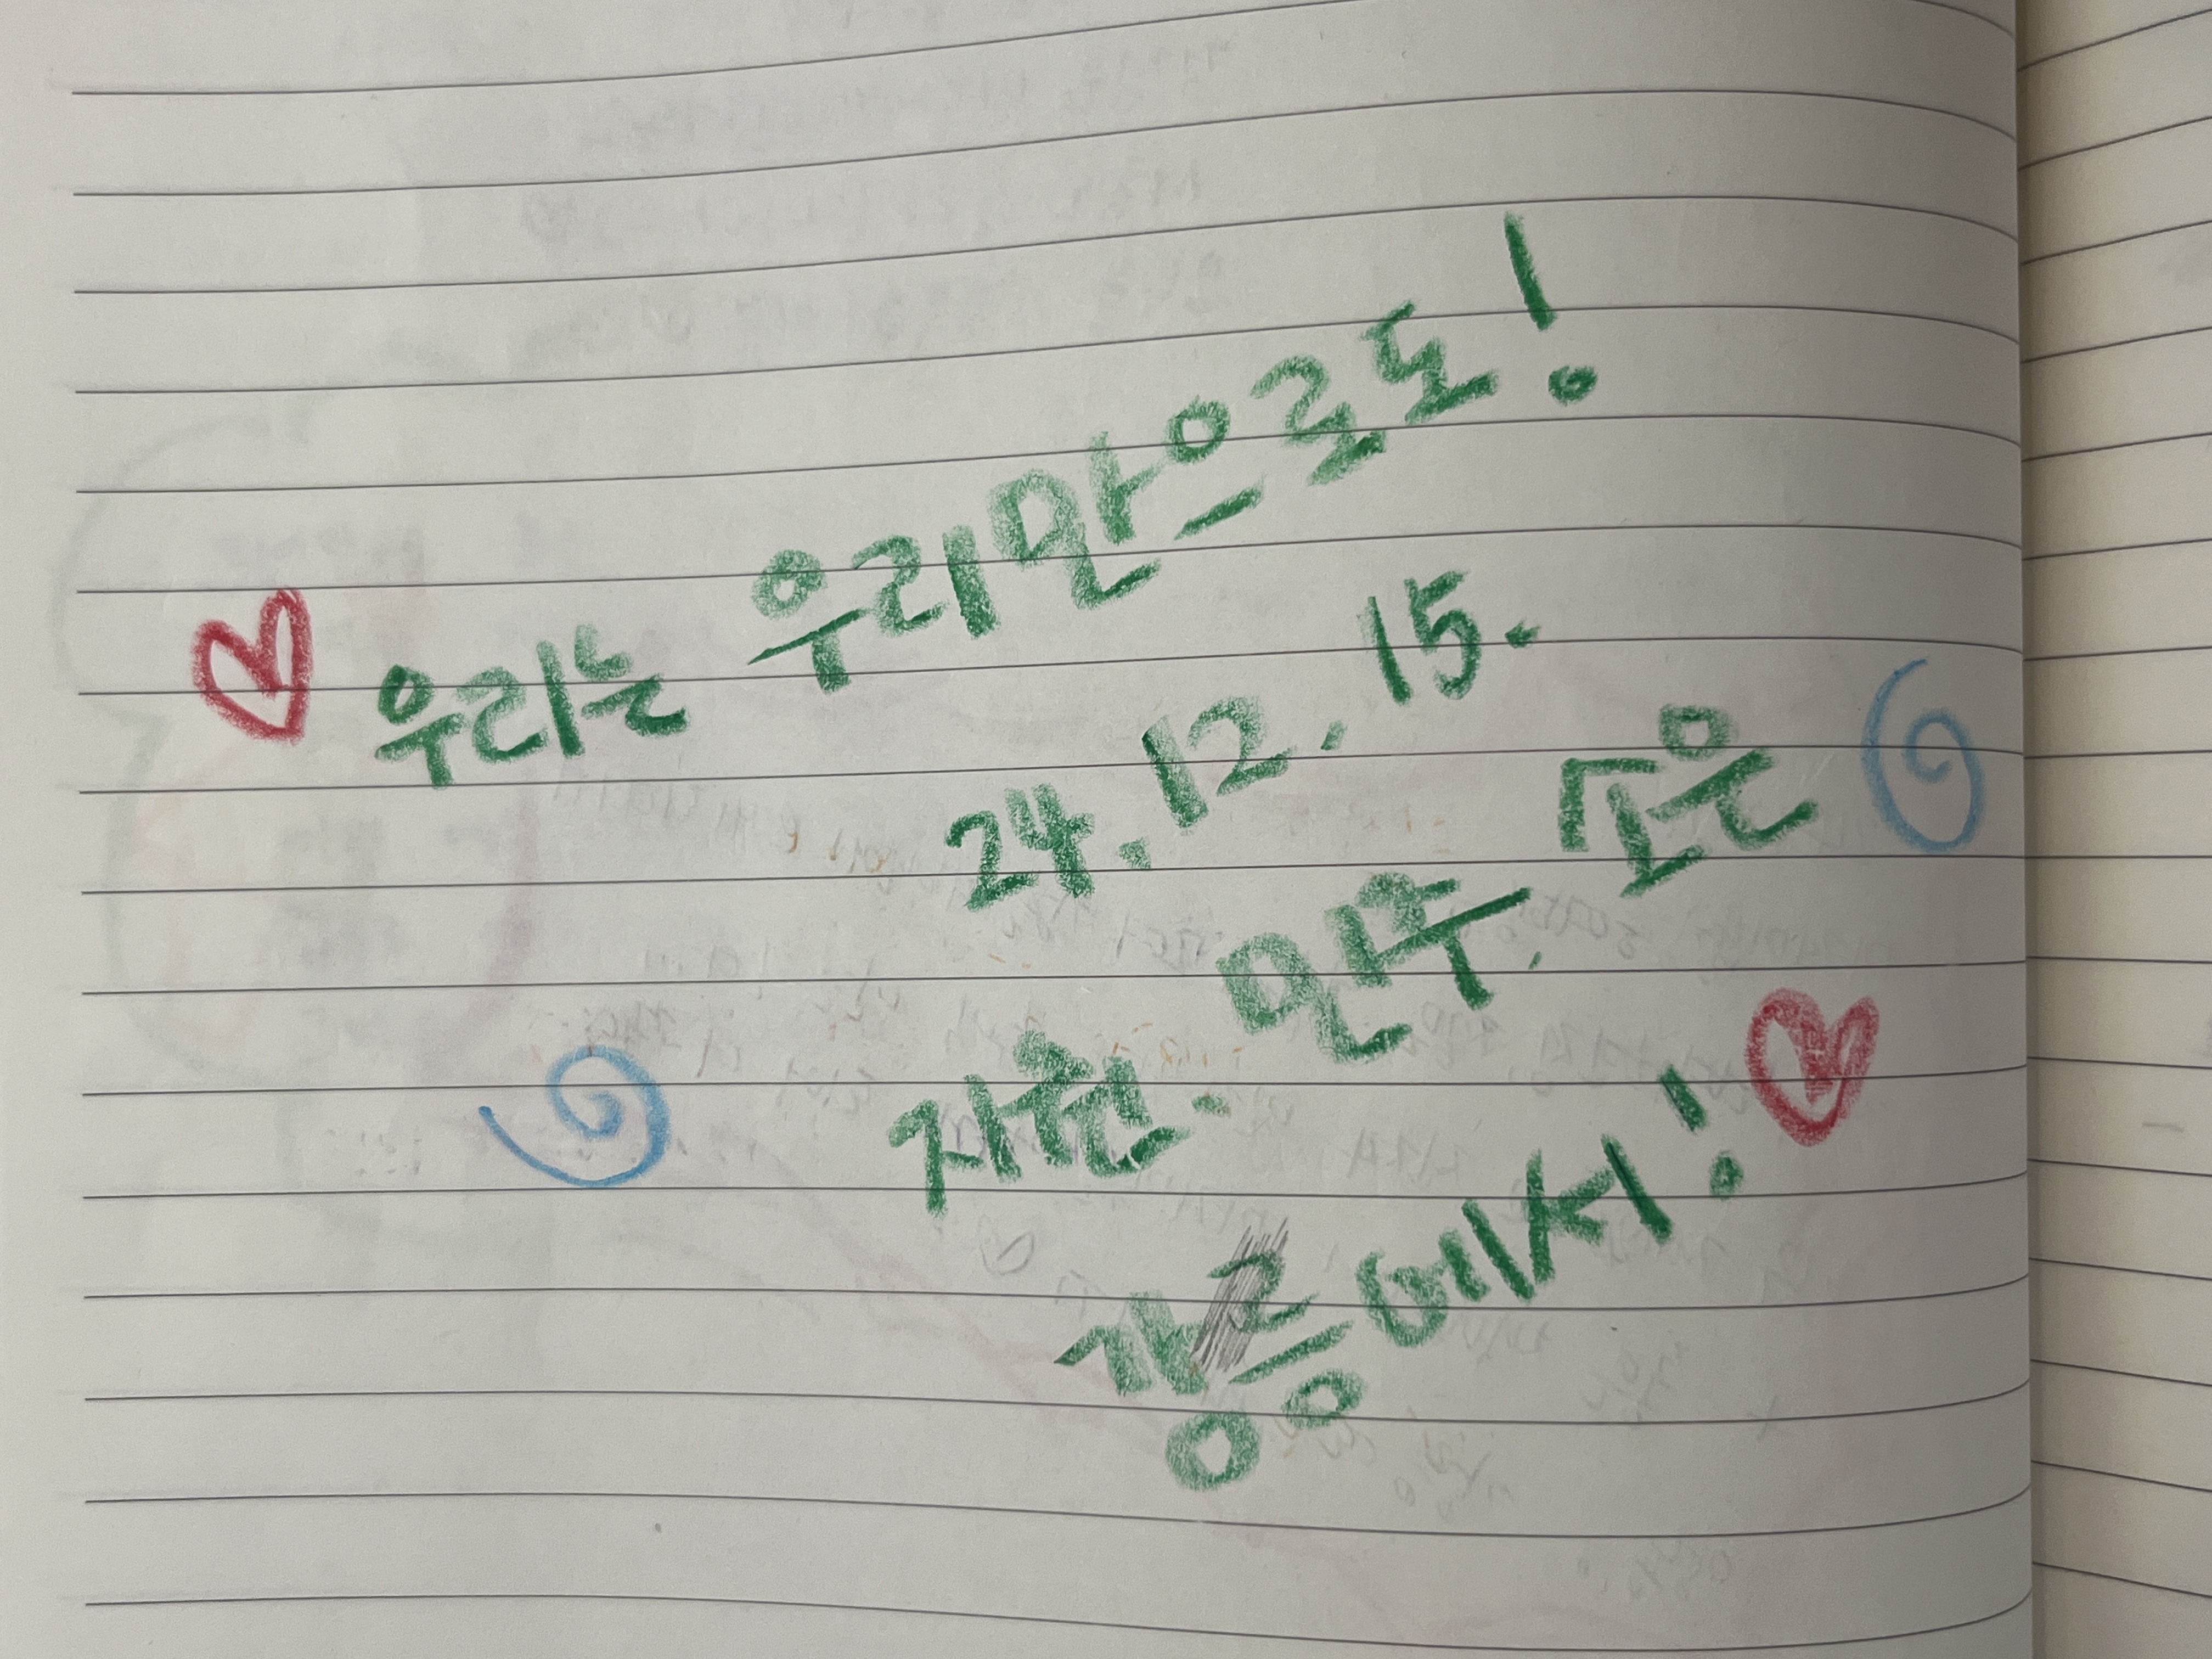 우리는 우리만으로도!
24.12.15.
지현. 민주. 소은
강릉에서!